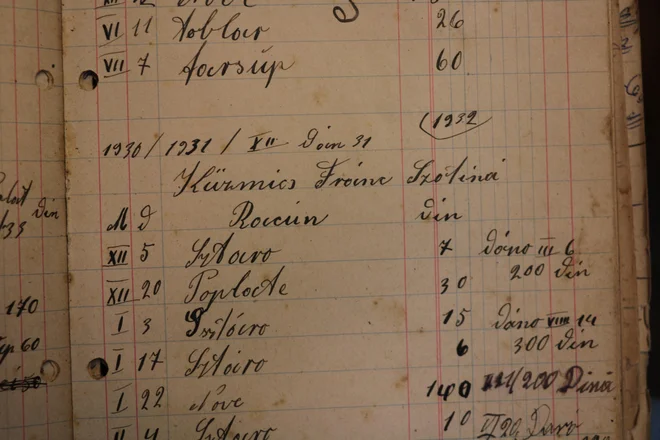 VI 11 Toblar 26
VII 7 farsup 60
1932
1930/1931/ XII Dan 31
Küzmics Franc Szotina
M d Racun din
XII 5 Sztaro 7 dano III 6
200 din
XII 20 Poplocte 30
I 3 Sztáro 15 dáno VIII 14
300 din
I 17 Sztáro 6
I 22 nove 140 III/200 Dina
II 4 Sztaro 10
170
60